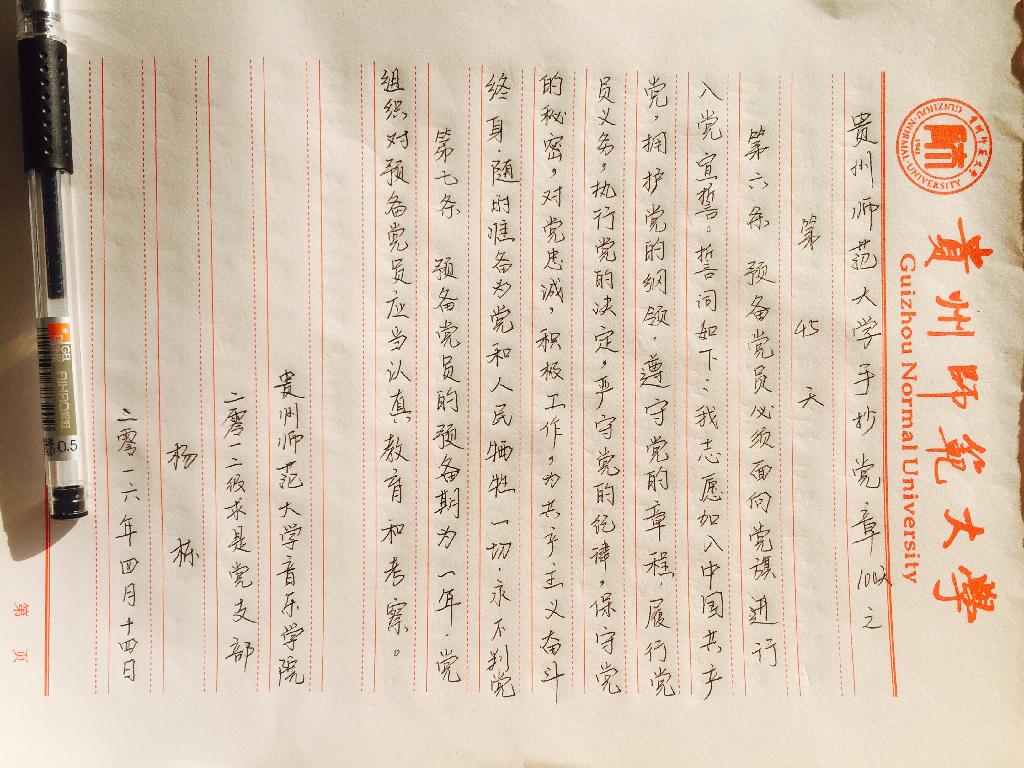 贵州师范大学
Guizhou Normal University
贵州师范大学
GUIZHOU NORMAL UNIVERSITY
1941
贵州师范大学手抄党章100天之
第 45 天
第六条 预备党员必须面向党旗进行
入党宣誓。誓词如下：我志愿加入中国共产
党，拥护党的纲领，遵守党的章程，履行党
员义务，执行党的决定，严守党的纪律，保守党
的秘密，对党忠诚，积极工作，为共产主义奋斗
终身，随时准备为党和人民牺牲一切，永不判党
第七条 预备党员的预备期为一年，党
组织对预备党员应当认真教育和考察。
贵州师范大学音乐学院
二零一二级求是党支部
杨 栋
二零一六年四月十四日
第 页
0.5